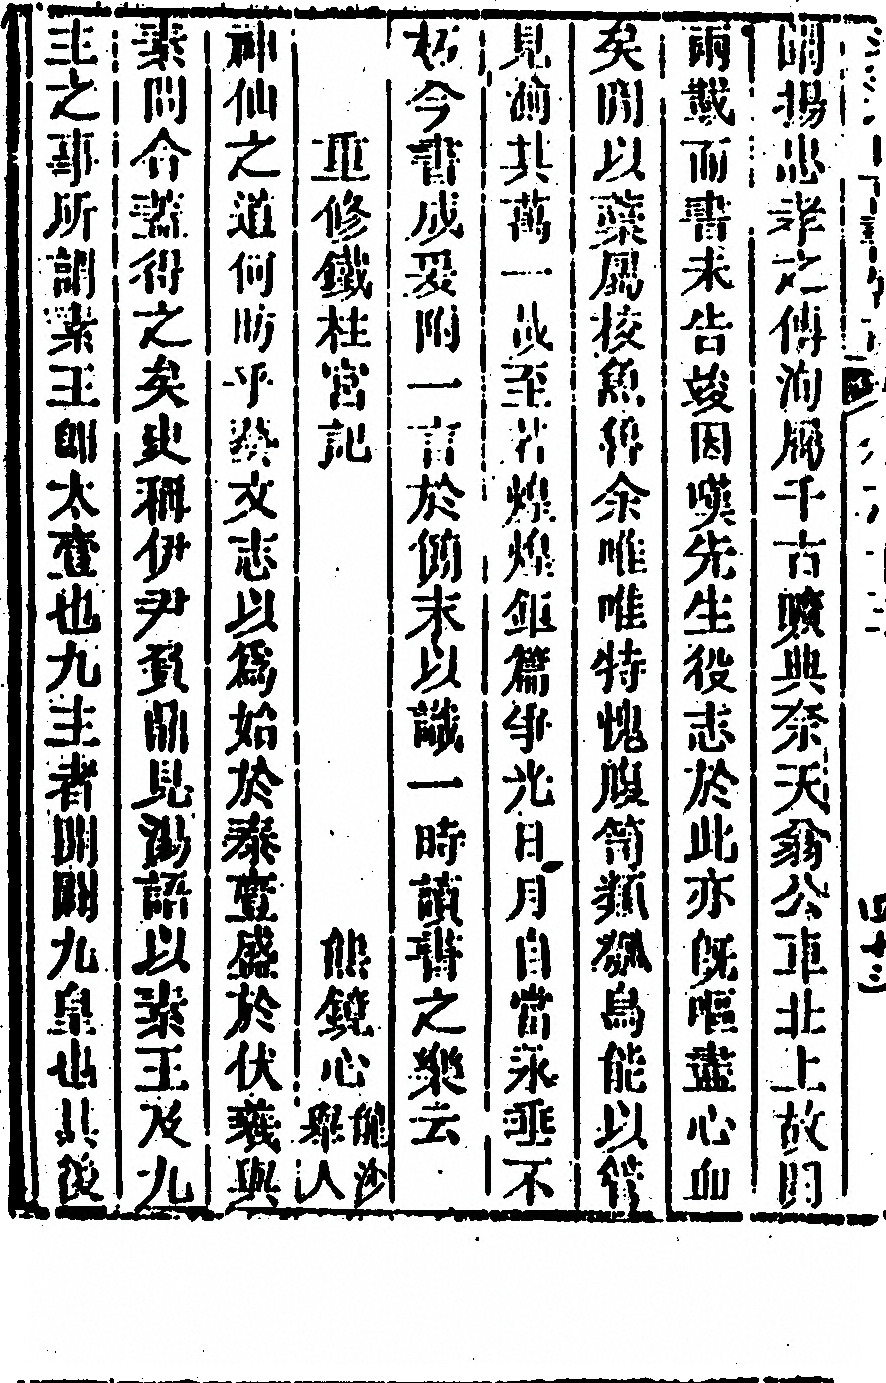 闡揚忠孝之傳洵屬千古曠典奈天翁公車北上故閱
兩載而書未告竣因嘆先生役志於此亦旣嘔盡心血
矣閒以藥屬校魚魯余唯唯特愧腹笥類猻烏能以管
見窺其萬一哉至若煌煌鉅篇爭光日月自當永垂不
朽今書成爰附一言於簡末以識一時讀書之樂云
重修鐵柱宮記 熊鏡心 醴沙舉人
神仙之道何昉乎藝文志以爲始於泰壹盛於伏羲與
素問合蓋得之矣史稱伊尹負鼎見湯語以素王及九
主之事所謂素王卽太壹也九主者開闢九皇也其後